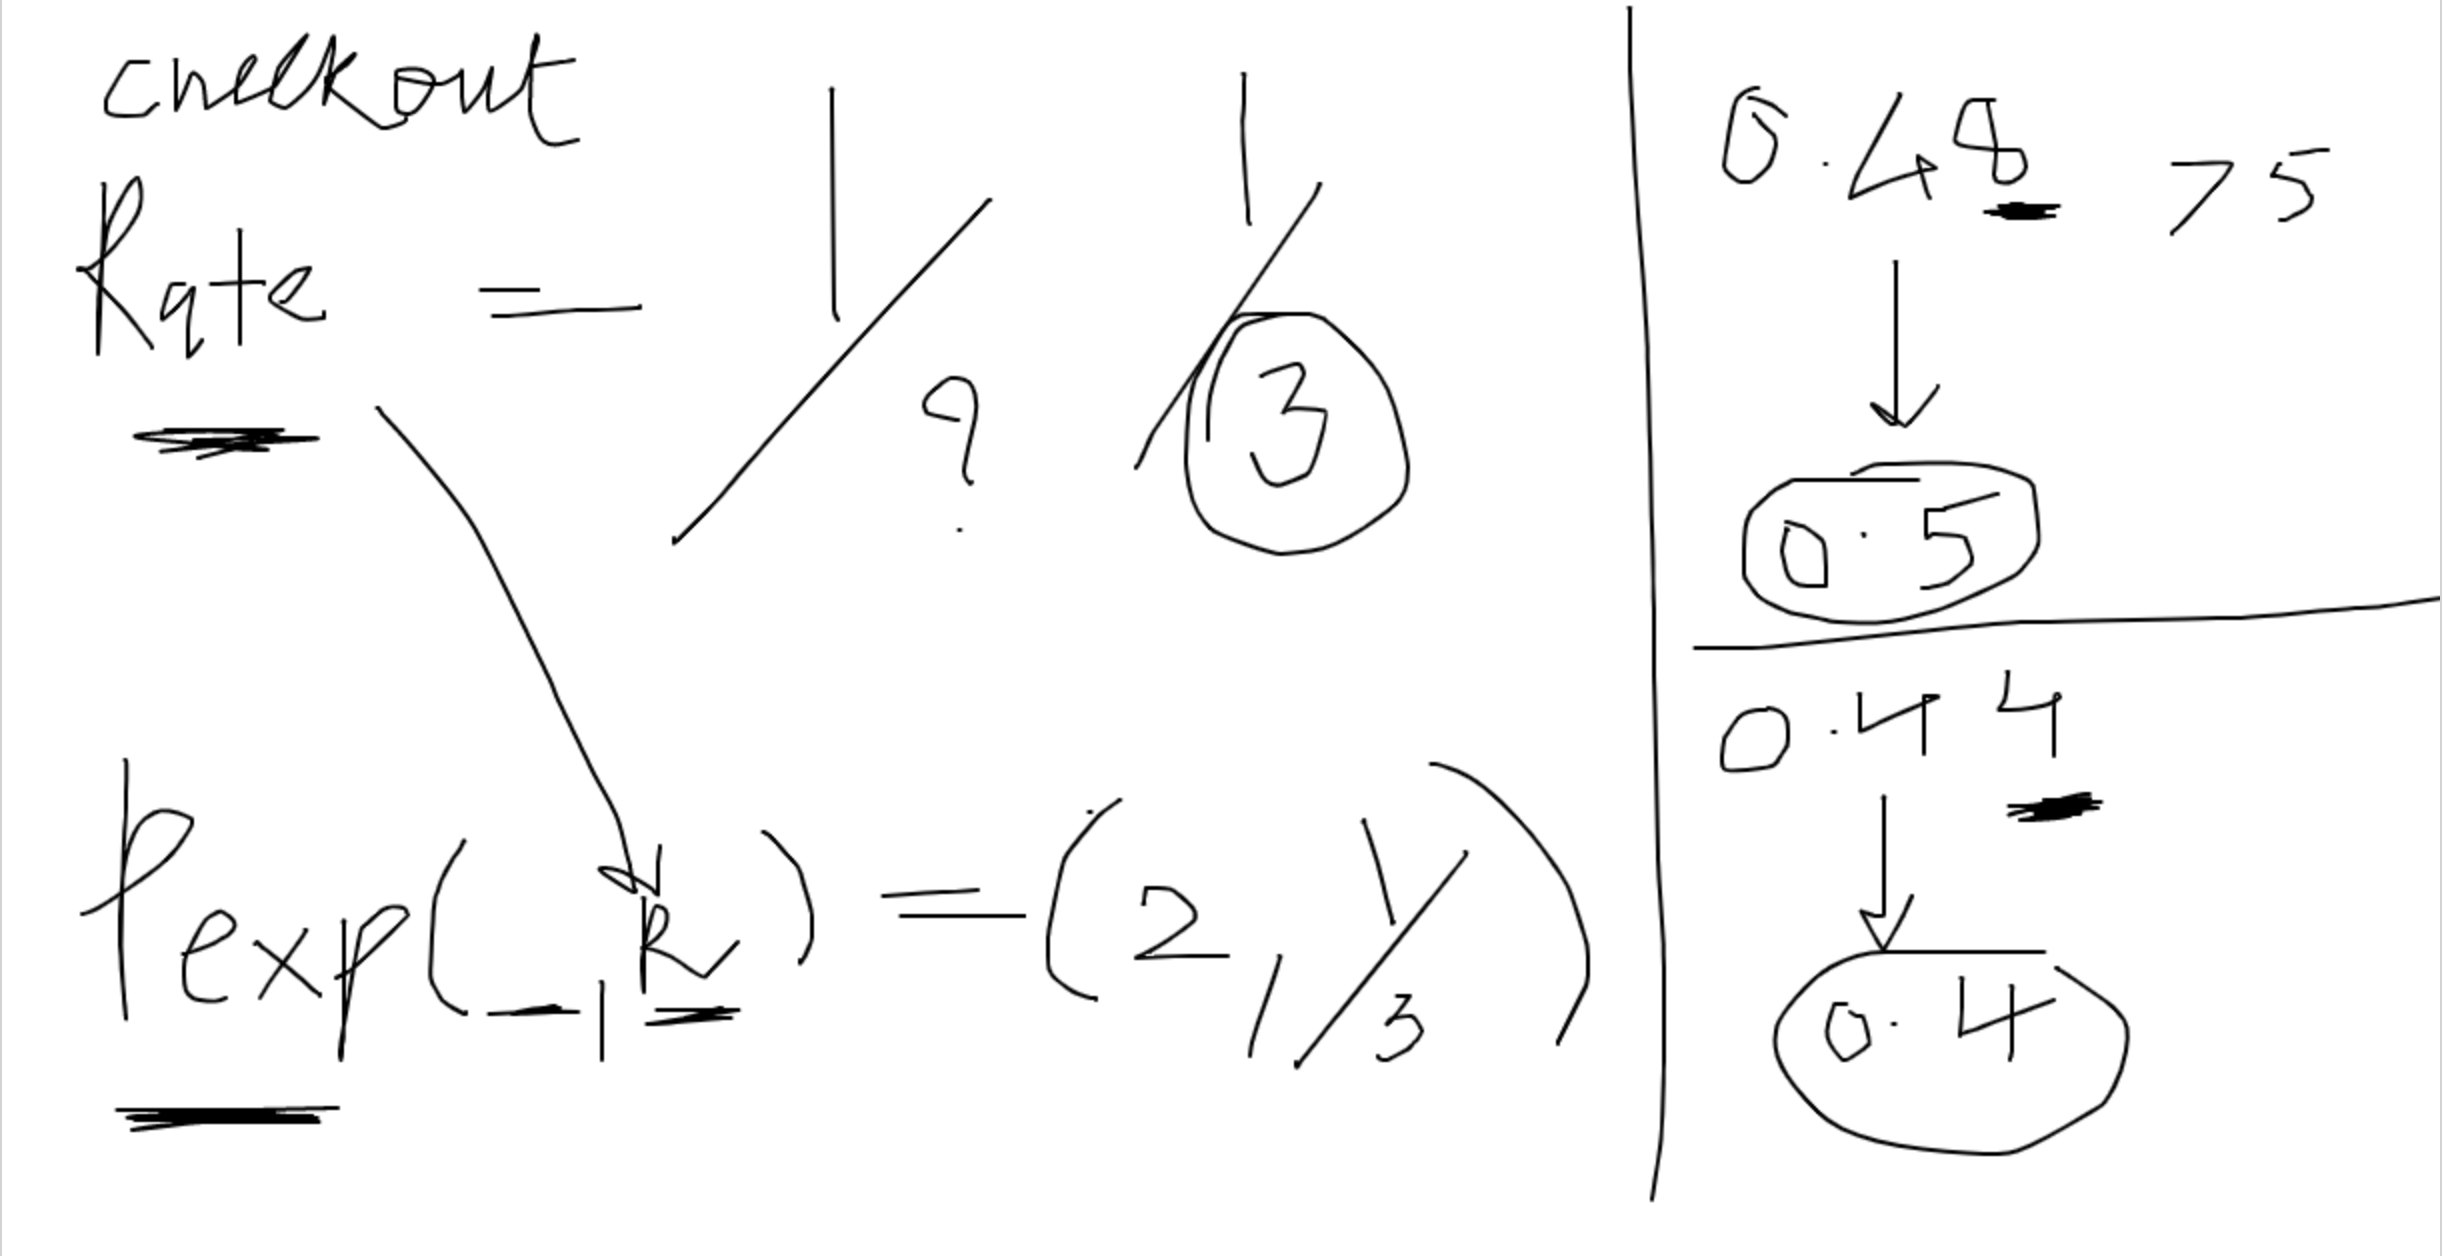 checkout
Rate = 1/? 1/3
Pexp(_, R) = (2, 1/3)
0.48 > 5
0.5
0.44
0.4